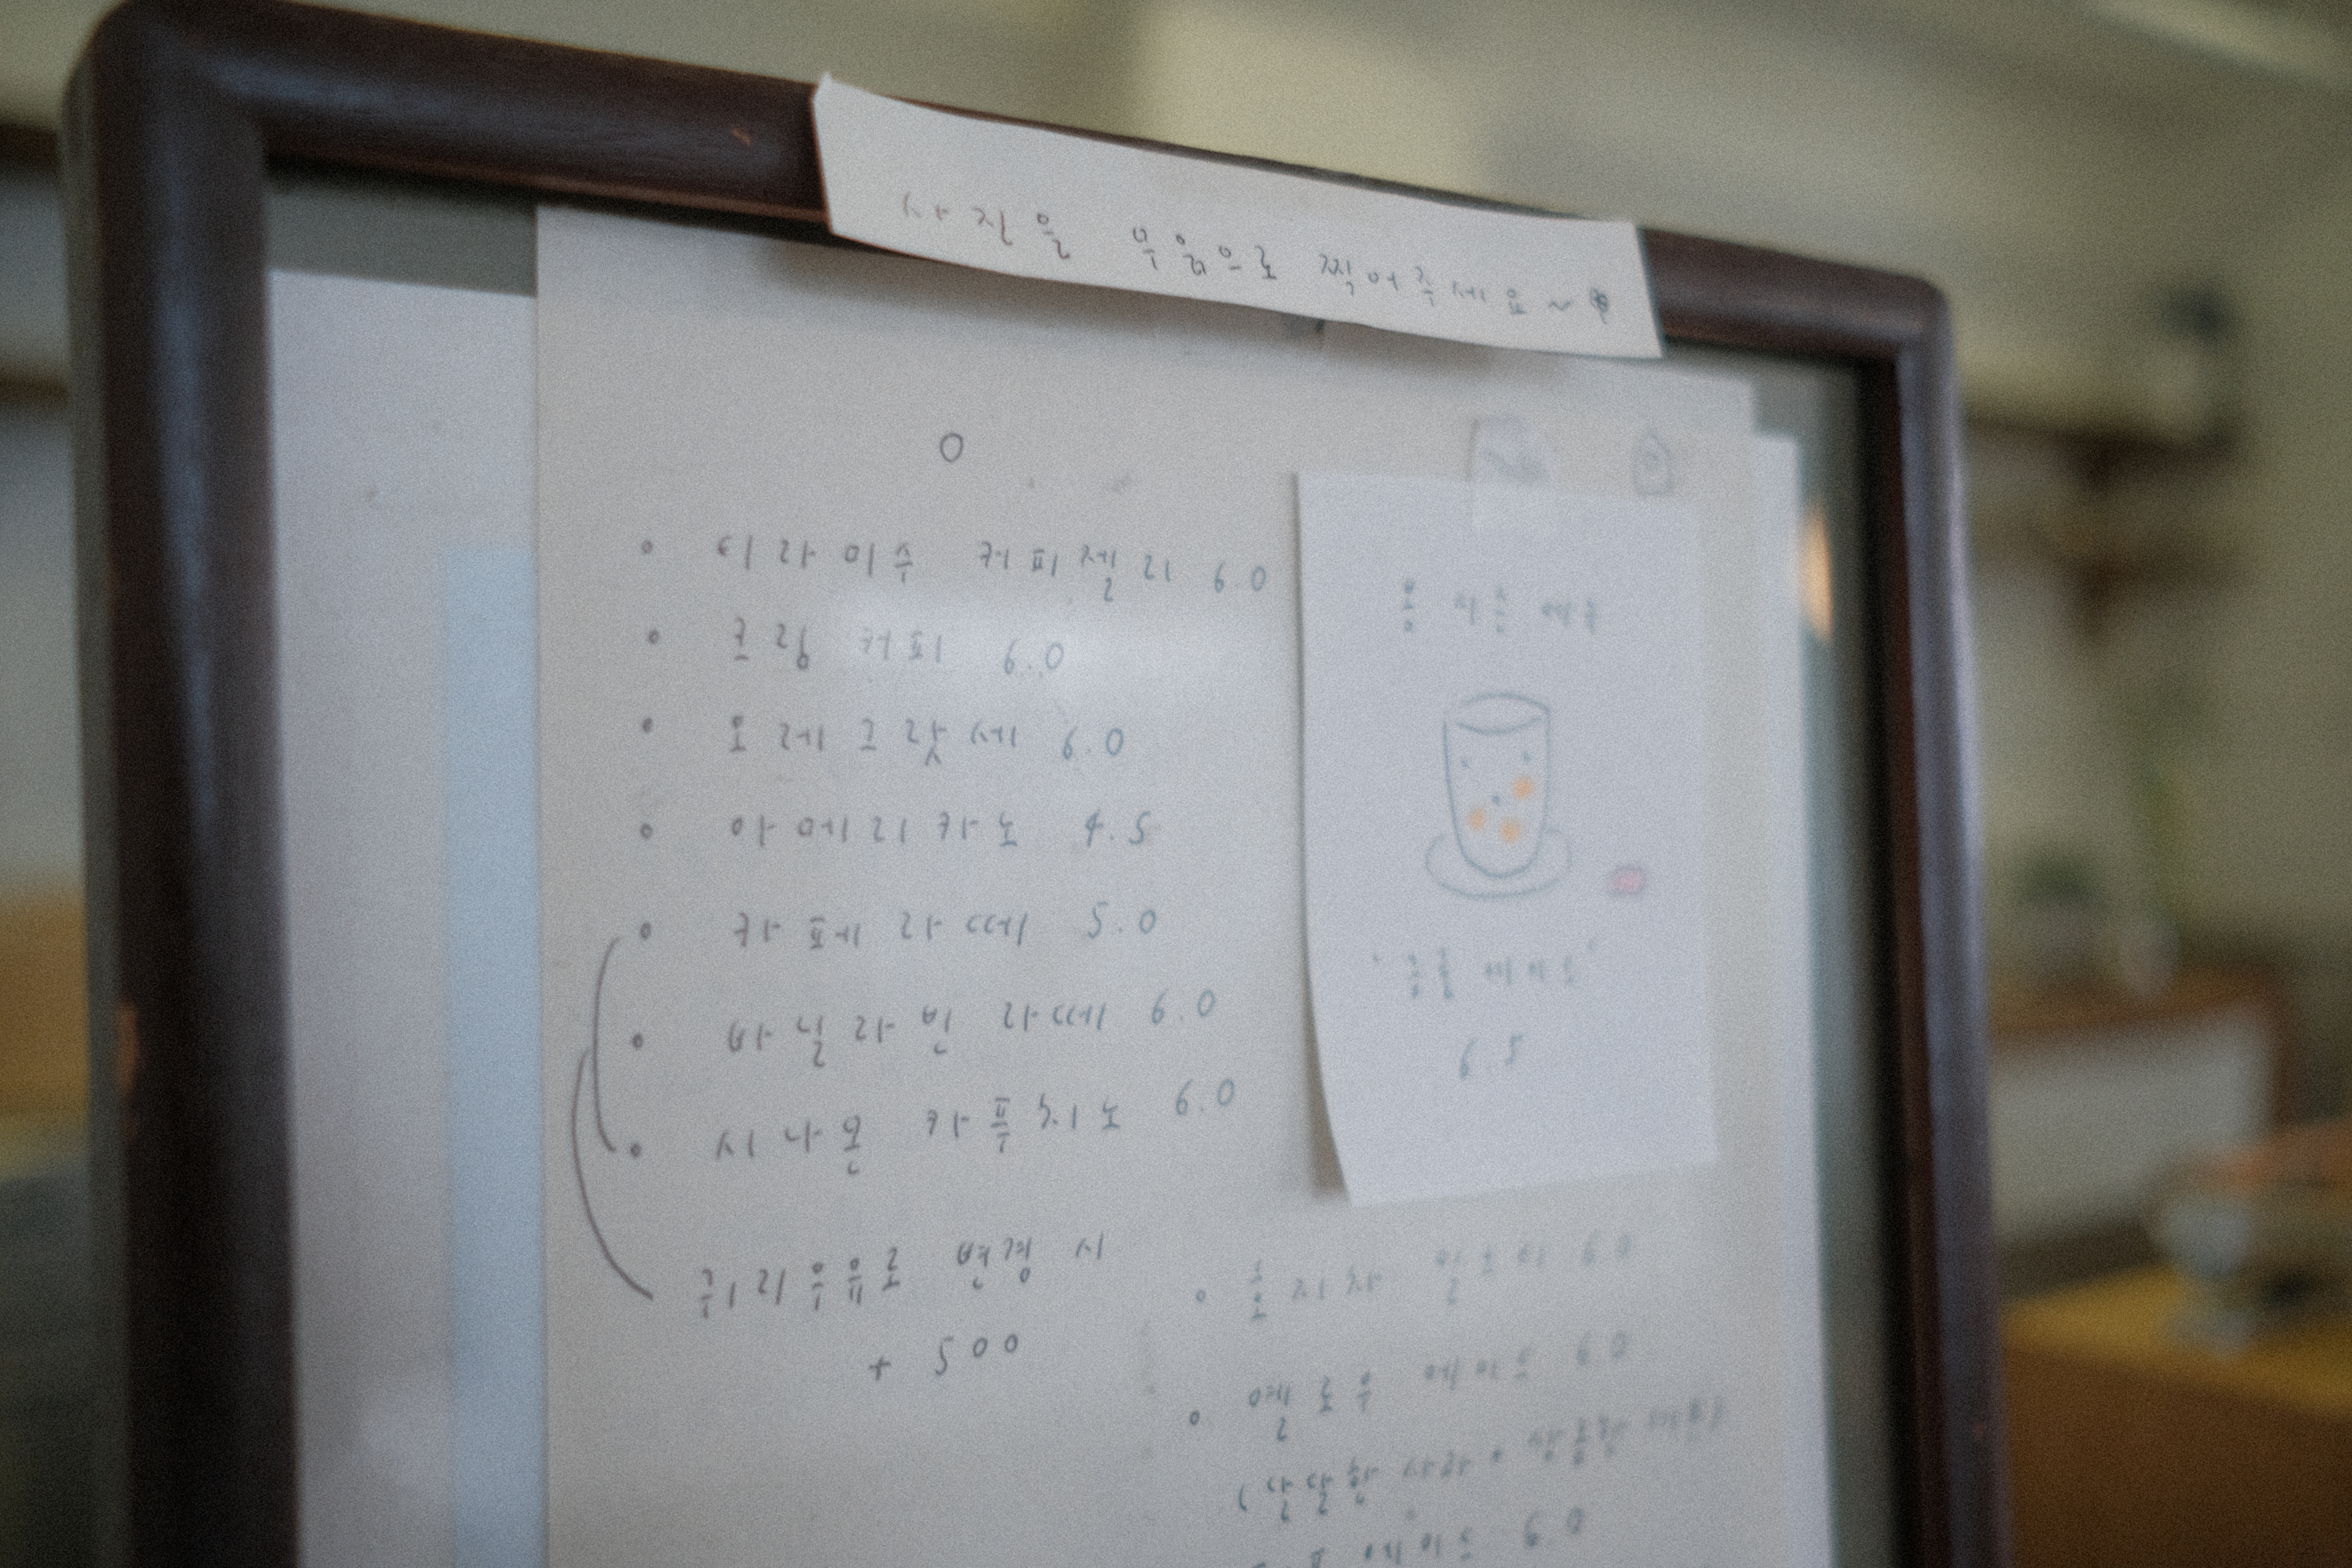 사진을 무음으로 찍어주세요~
티라미수 커피젤리 6.0
크림 커피 6.0
오레그랏세 6.0
아메리카노 4.5
카페라떼 5.0
바닐라빈 라떼 6.0
시나몬 카푸치노 6.0
귀리우유로 변경 시
+ 500
봄 시즌 메뉴
6.5
6.0
옐로우 에이드 6.0
(달달한 사과 + 상큼한
6.0